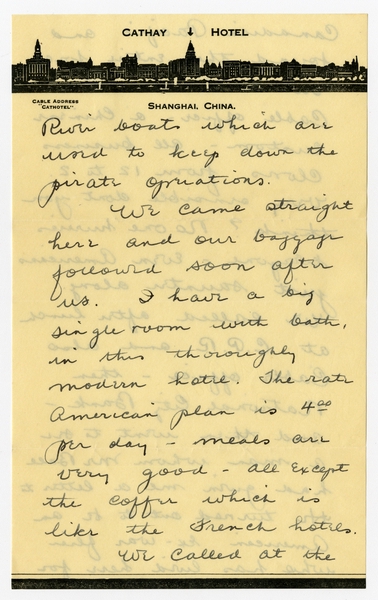 CATHAY HOTEL
CABLE ADDRESS
"CATHOTEL"
SHANGHAI, CHINA.
River boats which are
used to keep down the
pirate operations.
We came straight
here and our baggage
followed soon after
us. I have a big
single room with bath,
in this thoroughly
modern hotel. The rate
American plan is 4.00
per day – meals are
very good – all except
the coffee which is
like the French hotels.
We called at the